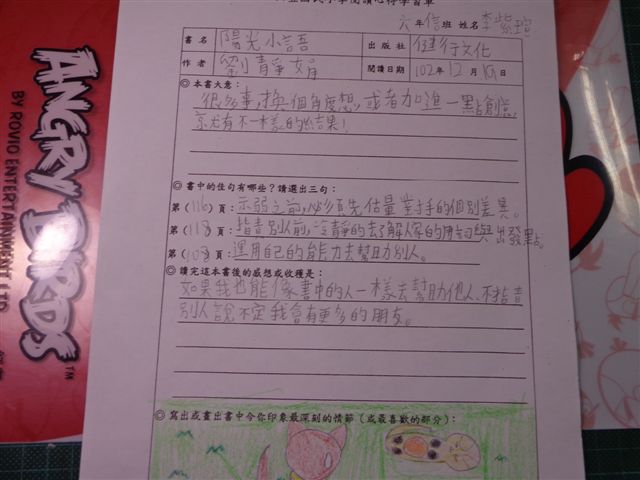 國民小學閱讀心得學習單
六年信班 姓名李紫瑄
書名 陽光小語 出版社 健行文化
作者 劉靜娟 閱讀日期 102年12月19日
◎本書大意:
很多事,換一個角度想,或者加進一點創意,
就有不一樣的結果!
◎書中的佳句有哪些?請選出三句:
第(116)頁:示弱之前,必須首先估量對手的個別差異。
第(118)頁:指責別人前,冷靜的去了解人家的用詞與出發點。
第(103)頁:運用自己的能力去幫助別人。
◎讀完這本書後的感想或收穫是:
如果我也能像書中的人一樣去幫助他人、不指責
別人說不定我會有更多的朋友。
◎寫出或畫出書中令你印象最深刻的情節(或最喜歡的部分):
ANGRY BIRDS™
BY ROVIO ENTERTAINMENT LTD